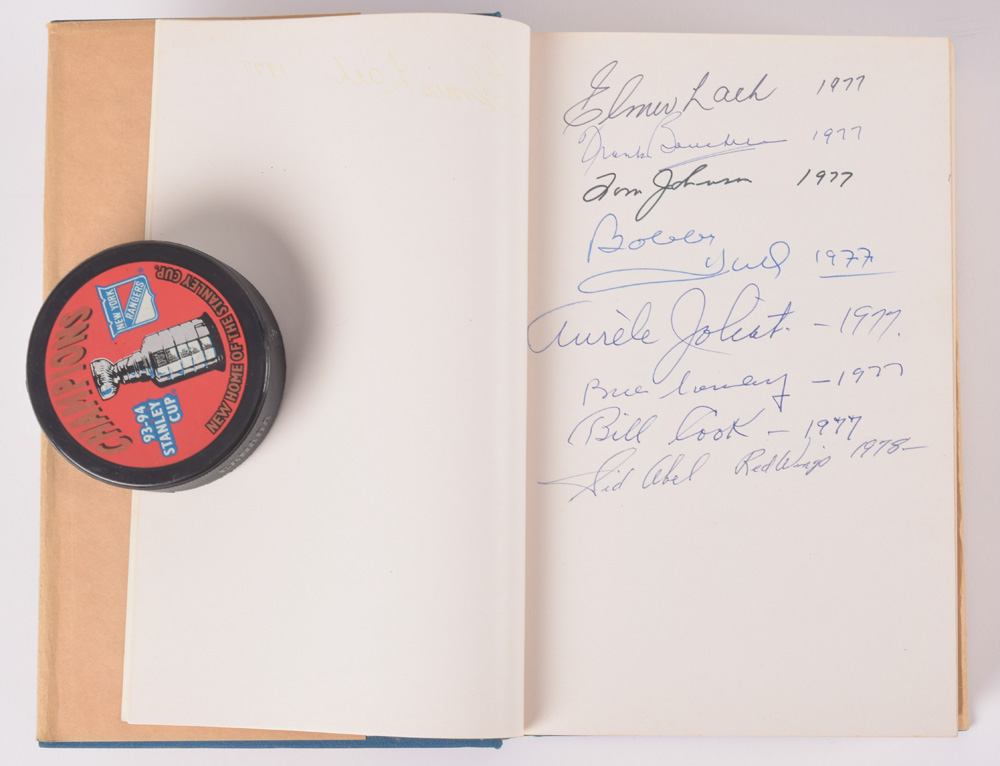 CHAMPIONS
NEW YORK
RANGERS
93-94
STANLEY
CUP
NEW HOME OF THE STANLEY CUP.
Elmer Lach 1977
Frank Boucher 1977
Tom Johnson 1977
Bobby
Hull 1977
Aurèle Joliat. - 1977.
1977
Bill Cook - 1977
Sid Abel Red Wings 1978-